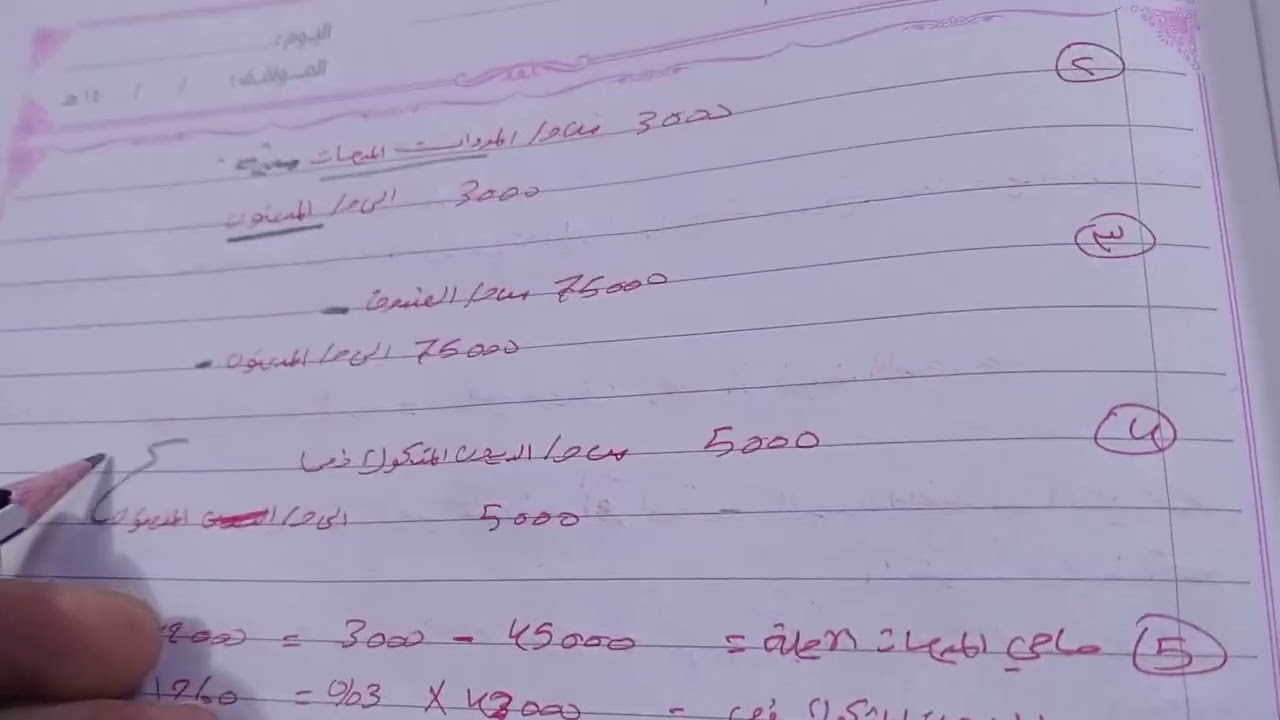 اليوم:
الموافق: / / ١٤هـ
٢
3000 من حـ/ المردودات المبيعات
3000 الى حـ/ المدينون
٣
75000 من حـ/ الصندوق
75000 الى حـ/ المدينون
4
5000 من حـ/ الديون المشكوك فيها
5000 الى حـ/ المدينون
5 صافي المبيعات الآجلة = 45000 - 3000 =
= 42000 × %03 = 1260